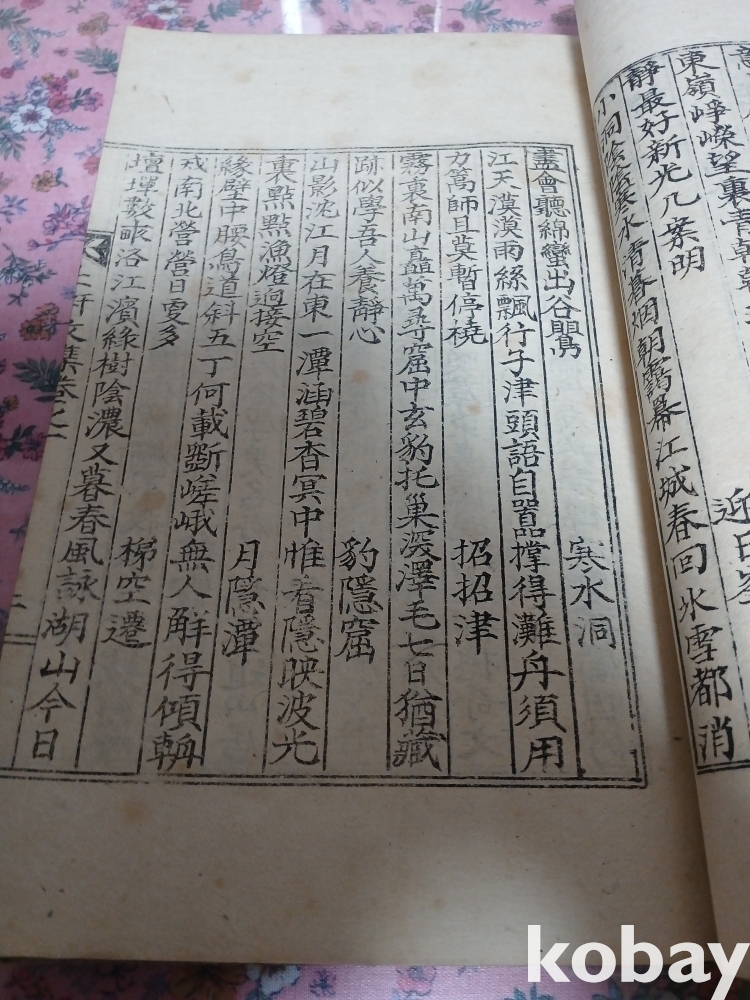 東嶺崢嶸望裏靑
靜最好新光几案明 近日峯
小洞陰陰寒水淸暮烟朝靄冪江城春回氷雪都消
盡會聽綿蠻出谷鸎 寒水洞
江天漠漠雨絲飄行子津頭語自囂撑得灘舟須用
力篙師且莫暫停橈 招招津
霧裏南山矗萬尋窟中玄豹托巢深澤毛七日猶藏
跡似學吾人養靜心 豹隱窟
山影沈江月在東一潭涵碧杳冥中惟看隱映波光
裏點點漁燈逈接空 月隱潭
緣壁中腰鳥道斜五丁何載斷嵯峨無人解得傾輈
戒南北營營日更多 梯空遷
壇墠數畝洛江濱綠樹陰濃又暮春風詠湖山今日
軒文集卷之一 二
kobay